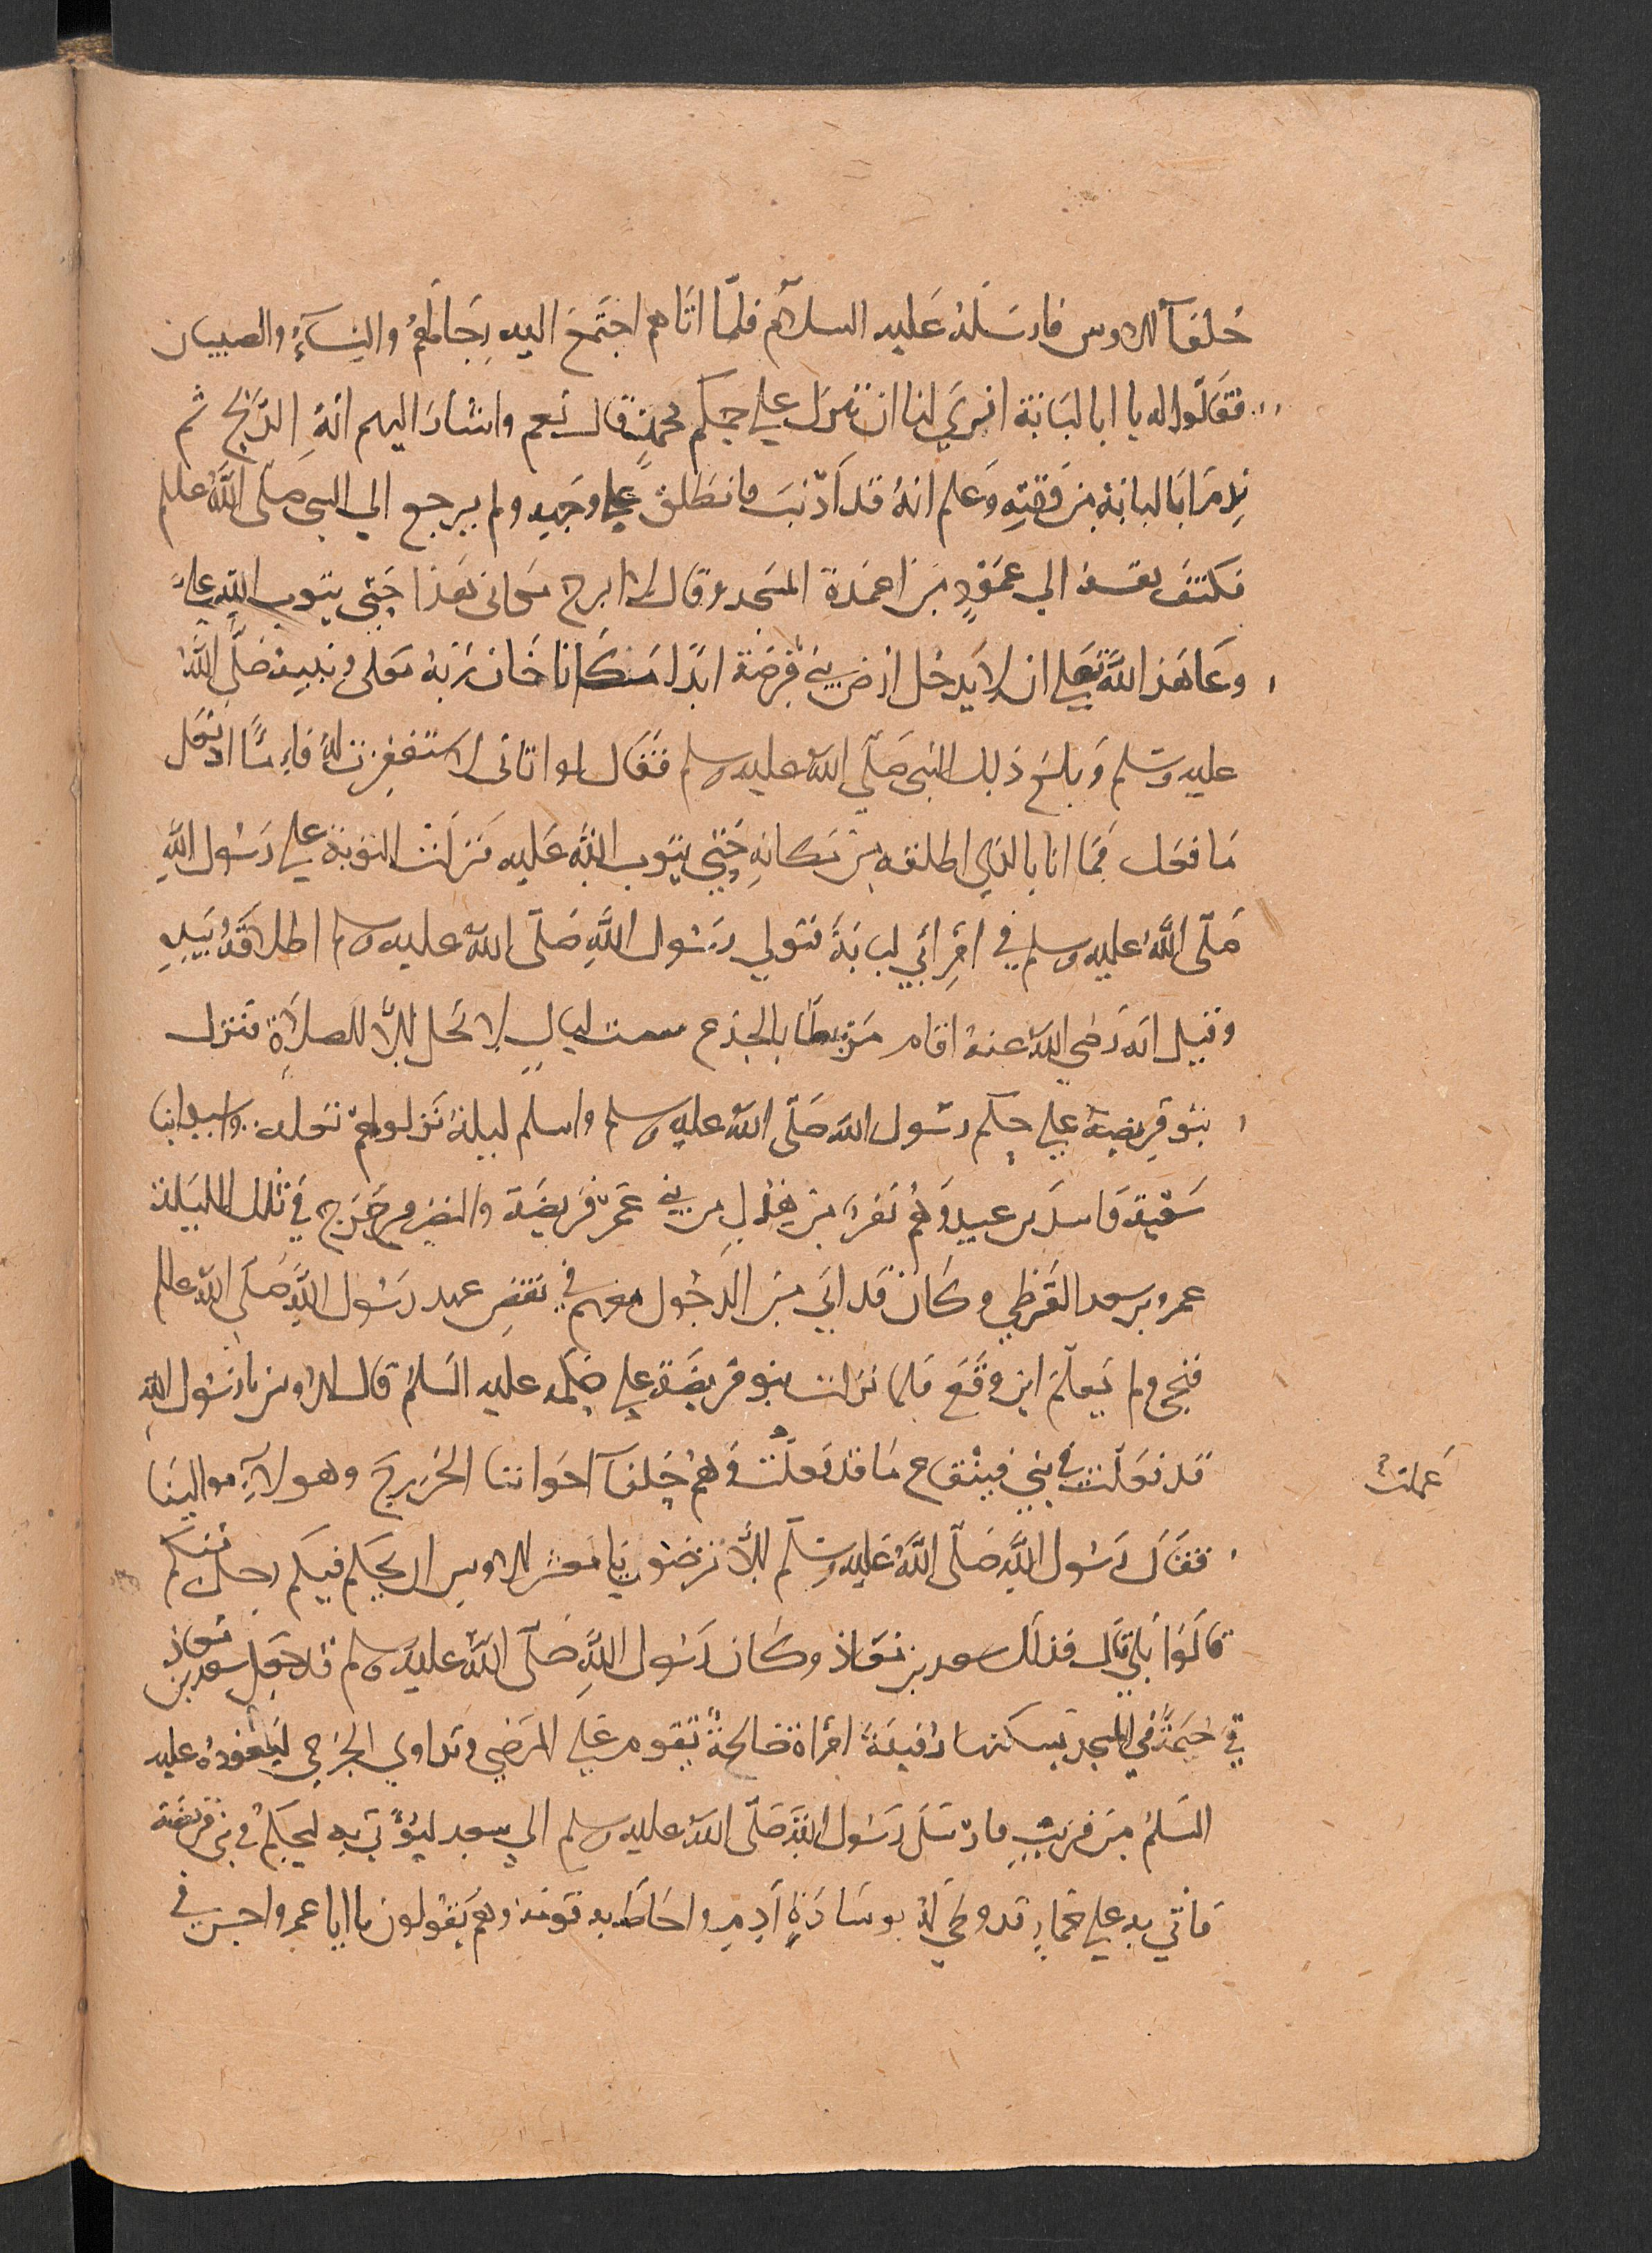 حُلفَآ للاوس فارسَلَهُ عَليه السلآم فلمّا اتَاهم اجتَمَعَ اليه رِجَالهُمْ والنِسَآءُ والصبيان
فقَالوا له يا ابا لبَابَة اترَي لنا ان ننزل علي حكم محمدٍ قال نعم واشارَ اليهم انهُ الذبح ثم
نِدمَ ابَا لبابَة من وَقتِهِ وَعلم انهُ قد اَذنبَ فانطَلقَ علي وَجهِه ولم يرجع الي النبي صَلّى اللَّهُ علم
فكتفَ نفسه الي عَمَودٍ مِن اعمَدة المسَجد وقال لا ابرح مَكاني هَذا حَتي يتوبَ اللّه عليَّ
وعَاهَد اللَّهَ تعَلي ان لا يَدخل ارض بني قرِيضَة ابدًا مَكانا خَان رَبّهُ تعَلى ونبيهُ صَلّى اللَّهُ
عليه وسَلم وَبلغ ذلك النبي صَلّي اللّه عليه وسلم فقَال لو اتاني لاستغفرت لهُ فامَّا اذ فعَل
مَا فعَل فمَا انا بالذي اطلقه مِن مَكانهِ حَتي يتوب اللَّه عَليه فنزلت التوبَة علي رَسُول اللَّهِ
صَلّى اللَّهُ عليه وسلم في امرِ ابَي لبابَة فتولي رسُول اللَّهِ صَلّى اللّهُ عليه وسلم اطلاقَهُ بيَدهِ
وقيل انهَ رَضي اللّه عنهُ اقام مَرتبطًا بالجذع ست ليالٍ لا يحَل إلاَّ للصلاَة فنزل
بنو قرِيضَة علي حكم رسُول اللّه صَلّى اللّه عليه وسلم واسلم ليلةَ نَزلوا هم ثعَلبه واسيد ابنا
سَعْيَة وَاسد بن عبيد وَهُم نفَر مِن هَدلٍ من بني عَمّ قريضَة والنضِير وخَرج في تلك الليَلة
عمرو بن سعد القَرظي وكَان قد ابَي مِن الدخُول معَهم في نَقضِ عهد رَسُول اللَّه صَلَى اللّه علم
فنجى ولم يَعلَم اين وقَعَ فلما نزلت بنو قريضَة علي حكمه عليه السَلم قال الاوس يا رَسُول اللّهِ
قد فعَلت في بَني قينقاع مَا قد فعَلْتَ وَهُم حُلفآ اخوَاننا الخَزرجَ وهولآءِ موالينَا
عَملتَ
فقَال رَسُول اللَّه صَلّى اللَّهُ عَليه وسَلّم إلاَّ ترضَون يَا معشر الاوسِ ان يحكم فيكم رجل منكم
قالوا بَلي قال فذلك سعد بن مَعَاذ وكان رَسُول اللَّهِ صَلّى اللَّهُ عليه وسلم قد جعَل سعد بن مَعاذ
في خيمَةٌ في المسجد يسكنها رُفيدَة امراة صَالحةٌ تقوم علي المرضى وتداوي الجرحي ليَعُودهُ عليه
السَلمُ مِن قريبٍ فارسَلَ رَسُول اللَّه صَلّى اللّه عليه وسلم الي سعدٍ ليؤتَي به ليحكم في بني قريضَة
فاتي به علي حمارٍ قد وطي لهُ بوسَادَةٍ ادمٍ واحَاطَ به قومَه وهم يَقولون يا ابا عمرو احسن في